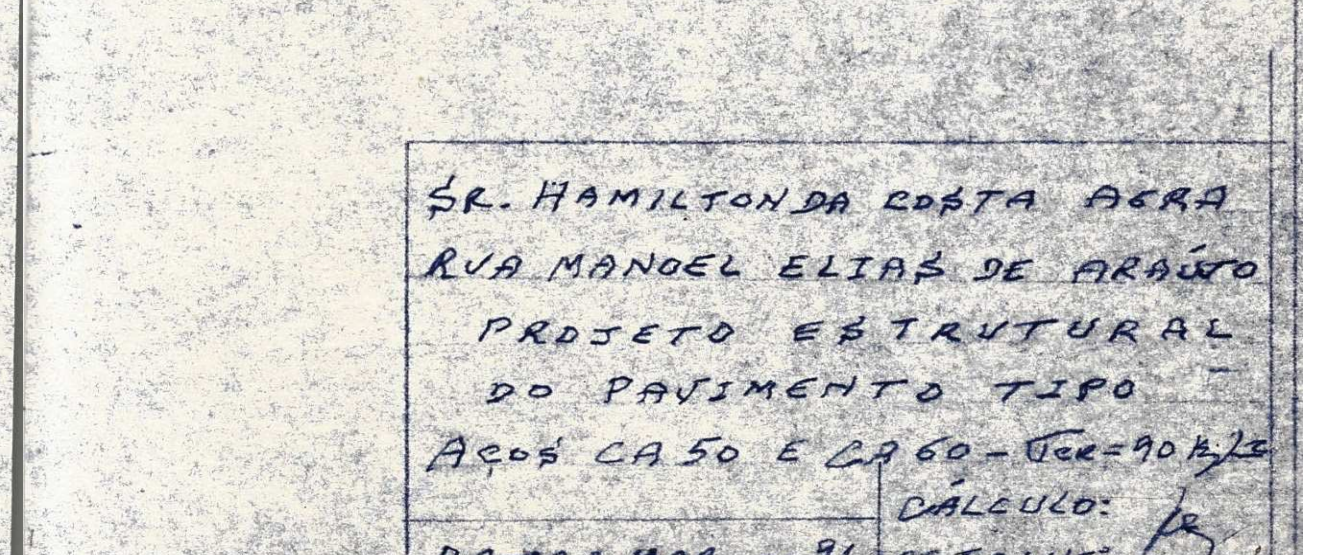 SR. HAMILTON DA COSTA AGRA
RUA MANOEL ELIAS DE ARAÚJO
PROJETO ESTRUTURAL
DO PAVIMENTO TIPO
AÇOS CA 50 E CA 60 - σCR=90
CÁLCULO:
91